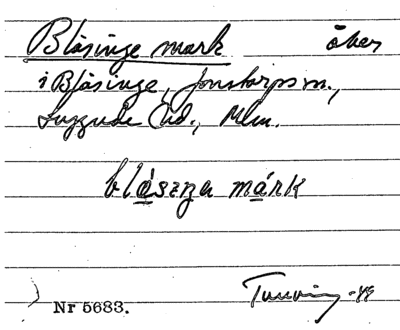 Blåsinge mark åker
i Blåsinge, Jonstorps sn.,
Luggude hd., Mlm.
blåszŋa márk
-48
Nr 5683.